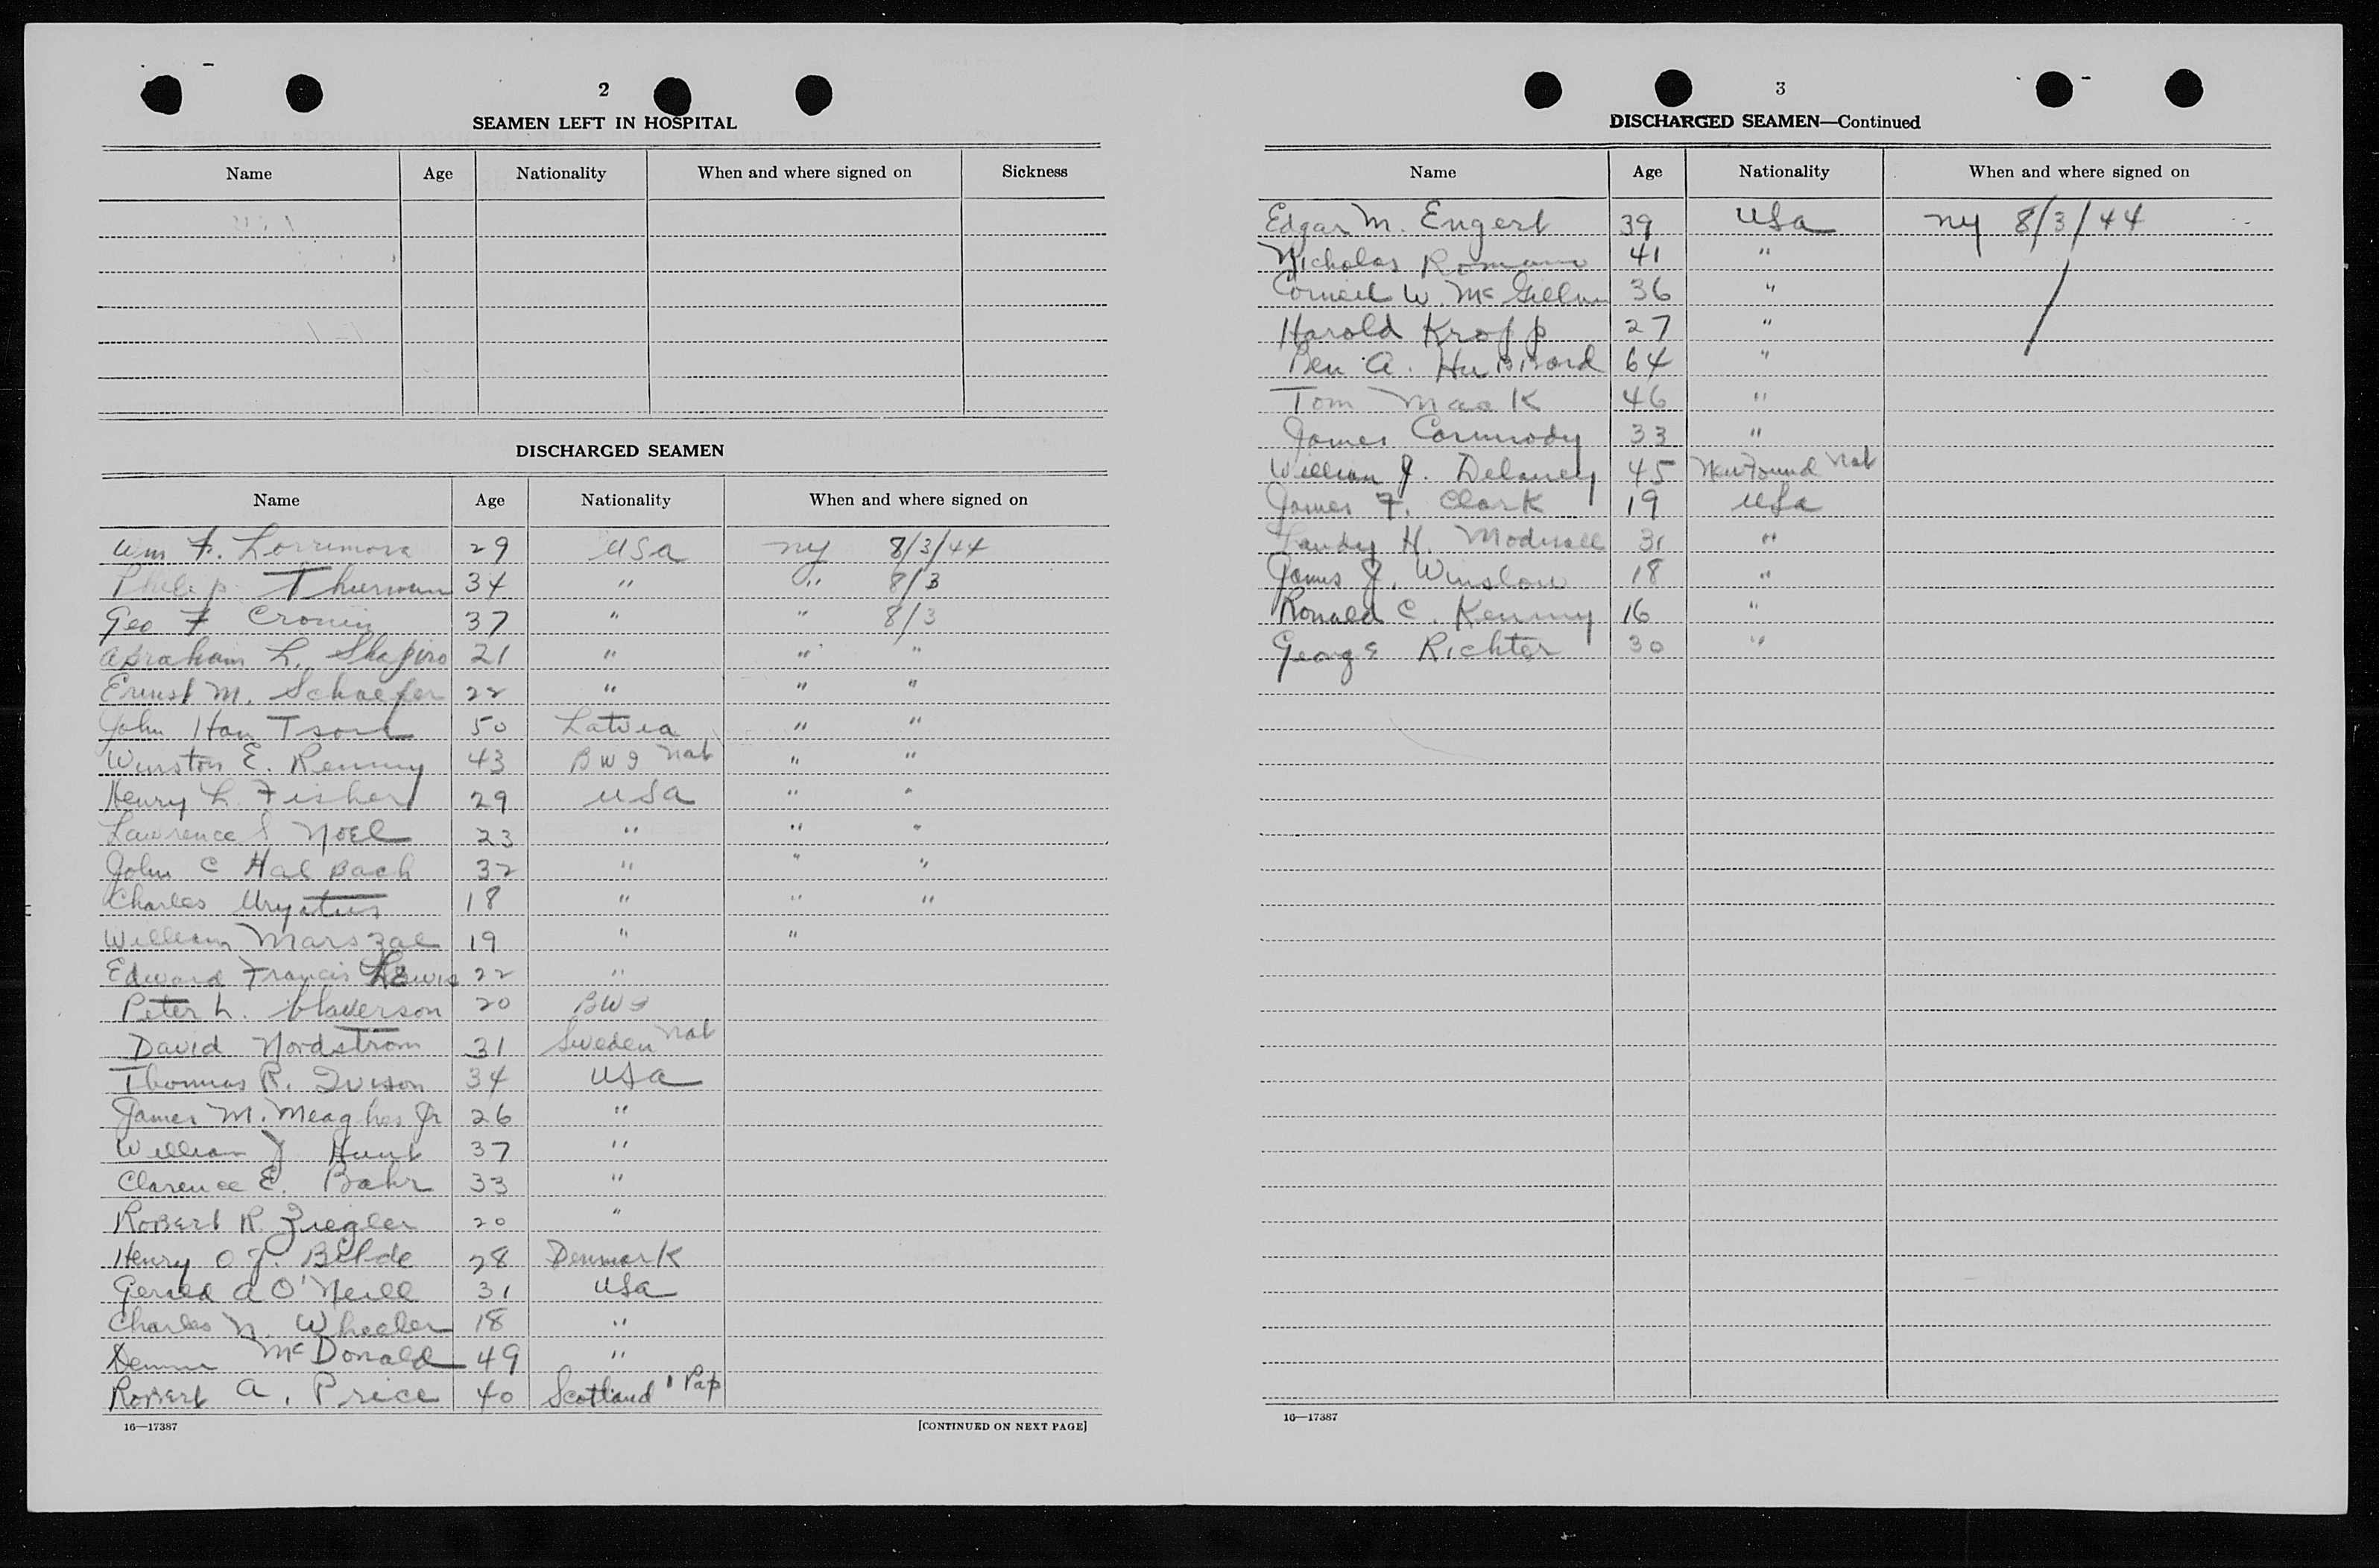 2
SEAMEN LEFT IN HOSPITAL
Name Age Nationality When and where signed on Sickness
DISCHARGED SEAMEN
Name Age Nationality When and where signed on
Wm F. Lorrimore 29 USA NY 8/3/44
Philip Thurman 34 " " 8/3
Geo F Cronin 37 " " 8/3
Abraham L. Shapiro 21 " " "
Ernest M. Schaefer 22 " " "
John 50 Latvia " "
Winston E. Renny 43 BWI Nat " "
Henry L. Fisher 29 USA " "
Lawrence S Noel 23 " " "
John C Halbach 32 " " "
Charles 18 " " "
William Marszal 19 " "
Edward Francis Lewis 22 "
Peter L. 20 BWI
David Nordstrom 31 Sweden Nat
Thomas R. Ivison 34 USA
James M. Meagher Jr 26 "
William J Hunt 37 "
Clarence E. Bahr 33 "
Robert R. Ziegler 20 "
Henry O J. Bilde 28 Denmark
Gerald A O'Neill 31 USA
Charles N. Wheeler 18 "
McDonald 49 "
Robert A. Price 40 Scotland 1st Pap
16—17387 [CONTINUED ON NEXT PAGE]
3
DISCHARGED SEAMEN—Continued
Name Age Nationality When and where signed on
Edgar M. Engert 39 USA NY 8/3/44
Nicholas Romano 41 "
W. 36 "
Harold Kropp 27 "
Ben A. Hubbard 64 "
Tom Mack 46 "
James Carmody 33 "
William J. Delaney 45 Newfound Nat
James F. Clark 19 USA
H. 31 "
James J. Winslow 18 "
Ronald C. Kenny 16 "
George Richter 30 "
16—17387